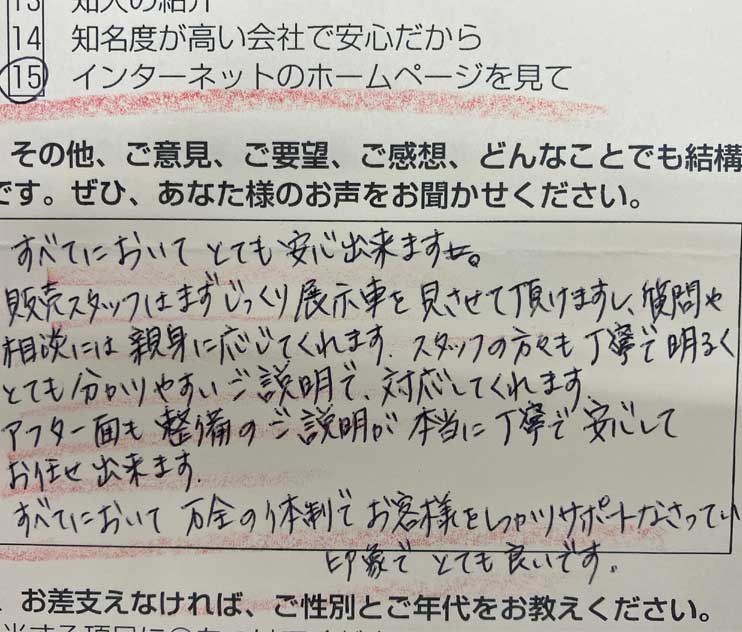 13 知人の紹介
14 知名度が高い会社で安心だから
15 インターネットのホームページを見て
その他、ご意見、ご要望、ご感想、どんなことでも結構
です。ぜひ、あなた様のお声をお聞かせください。
すべてにおいて とても 安心出来ます。
販売スタッフはまずじっくり展示車を見させて頂けますし、質問や
相談には親身に応じてくれます。スタッフの方々も丁寧で明るく
とても分かりやすいご説明で、対応してくれます
アフター面も整備のご説明が本当に丁寧で安心して
お任せ出来ます。
すべてにおいて 万全の体制で お客様をしっかりサポートなさってい
印象で とても良いです。
お差支えなければ、ご性別とご年代をお教えください。